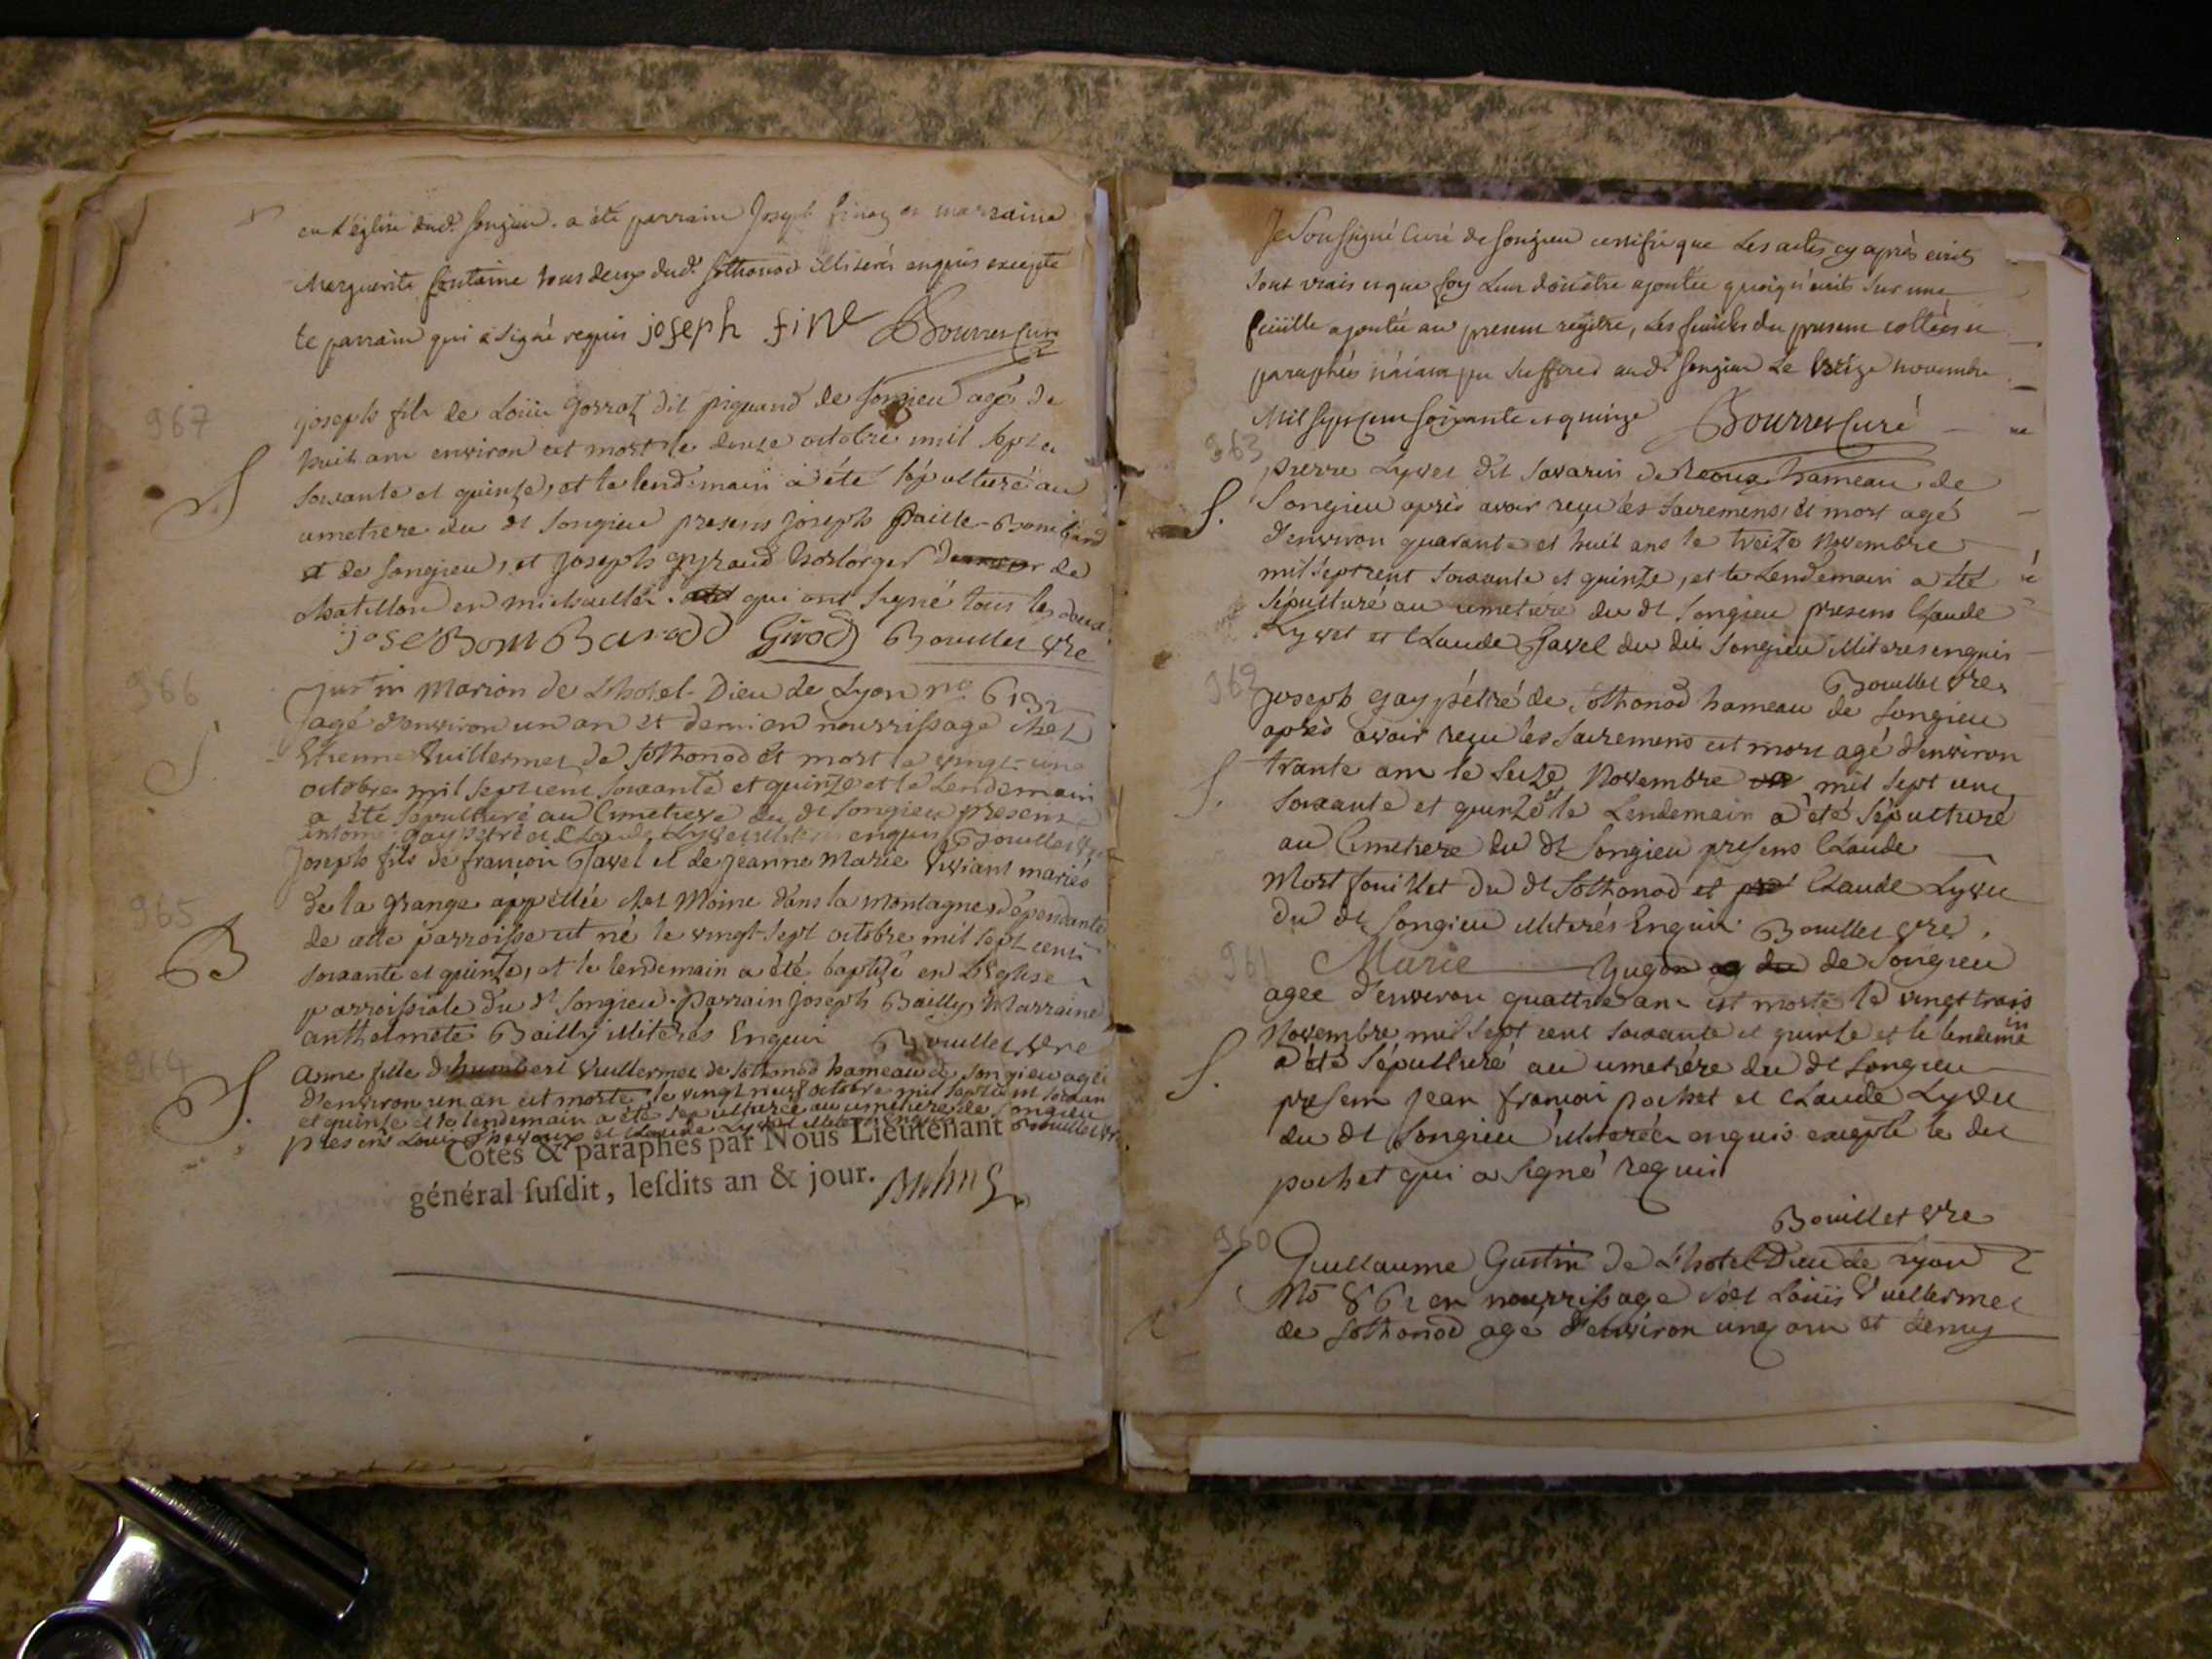 en L'église dud.t Songieu. a été parrain Joseph finez et marraine
Marguerite fontaine tous deux dud.t Sothonod illiterés enquis excepté
le parrain qui a signé requis joseph fiNe Bourres Curé
967
joseph fils de Loüis Gorrat dit piquand de Songieu agé de
huit ans environ est mort le douze octobre mil sept c
soixante et quinze, et le lendemain a été sépulturé au
S
cimetiere du dt Songieu presens joseph Bombard
et de Songieu, et joseph horloger de
Chatillon en michaille. qui ont signé tous les deux
jose BomBard Girod Bouillet vre
966
Justin Marion de L'hotel-Dieu de Lyon no 6132
agé d'environ un an et demi en nourrissage chez
S.
Etienne Vuillermet de Sothonod est mort le vingt-une
octobre mil sept cent soixante et quinze et le Lendemain
a été sépulturé au Cimetiere du dt Songieu presens
antoine gay pétré et Claude Lyvet illiteres enquis Bouillet vre
Joseph fils de françois Javel et de jeanne Marie Viviant mariés
965
de la grange appellée chez Moine dans la montagne dépendante
de cette parroisse est né le vingt-sept octobre mil sept cent
B
soixante et quinze, et le lendemain a été baptizé en L'Eglise
parroissiale du dt Songieu. Parrain joseph Bailly Marraine
anthelmete Bailly illiterés Enquis Bouillet vre
964
Anne fille d'humbert Vuillermet de Sothonod hameau de Songieu agée
S.
d'environ un an est morte le vingt neuf octobre mil sept cent soixan
et quinze et le lendemain a été sepulturée au cimetiere de Songieu
presens Louis et Claude Lyvet illiteres enquis Bouillet vre
Cotés & paraphés par Nous Lieutenant
général susdit, lesdits an & jour.
Je Soussigné Curé de Songieu certifie que Les actes cy après ecrits
Sont vrais et que foy Leur doit être ajoutée quoiqu'ecrits Sur une
feüille ajoutée au present régitre, Les feuilles du present cottées et
paraphées n'aiant pu Suffire aud.t Songieu Le treize novembre
Mil Sept Cent soixante et quinze Bourres Curé
963
pierre Lyvet dit Savarin de hameau de
S.
Songieu après avoir reçu les sacremens est mort agé
d'environ quarante et huit ans le treize Novembre
mil sept cent soixante et quinze, et le Lendemain a été
sépulturé au cimetiere du dt Songieu presens Claude
Lyvet et Claude Javel du dit Songieu illiteres enquis
Bouillet vre
962
Joseph gay pétré de Sothonod hameau de Songieu
après avoir reçu les sacremens est mort agé d'environ
S.
trante ans le seize Novembre mil sept cent
soixante et quinze et le Lendemain a été sépulturé
au Cimetiere du dt Songieu presens Claude
Mostfouillet du dt Sothonod et Claude Lyvet
du dt Songieu illiterés Enquis Bouillet vre
961
Marie Gugon de Songieu
agée d'environ quattre ans est morte le vingt trois
Novembre mil sept cent soixante et quinze et le lendemain
S.
a été sépulturé au cimetiére du dt Songieu
presens jean françois pochet et Claude Lyvet
du dt Songieu illiterés enquis excepté le dit
pochet qui a signé requis
Bouillet vre
960
Guillaume Gustin de L'hotel Dieu de Lyon
No 862 en nourrissage chez Loüis Vuillermet
de Sothonod agé d'environ un an et demy